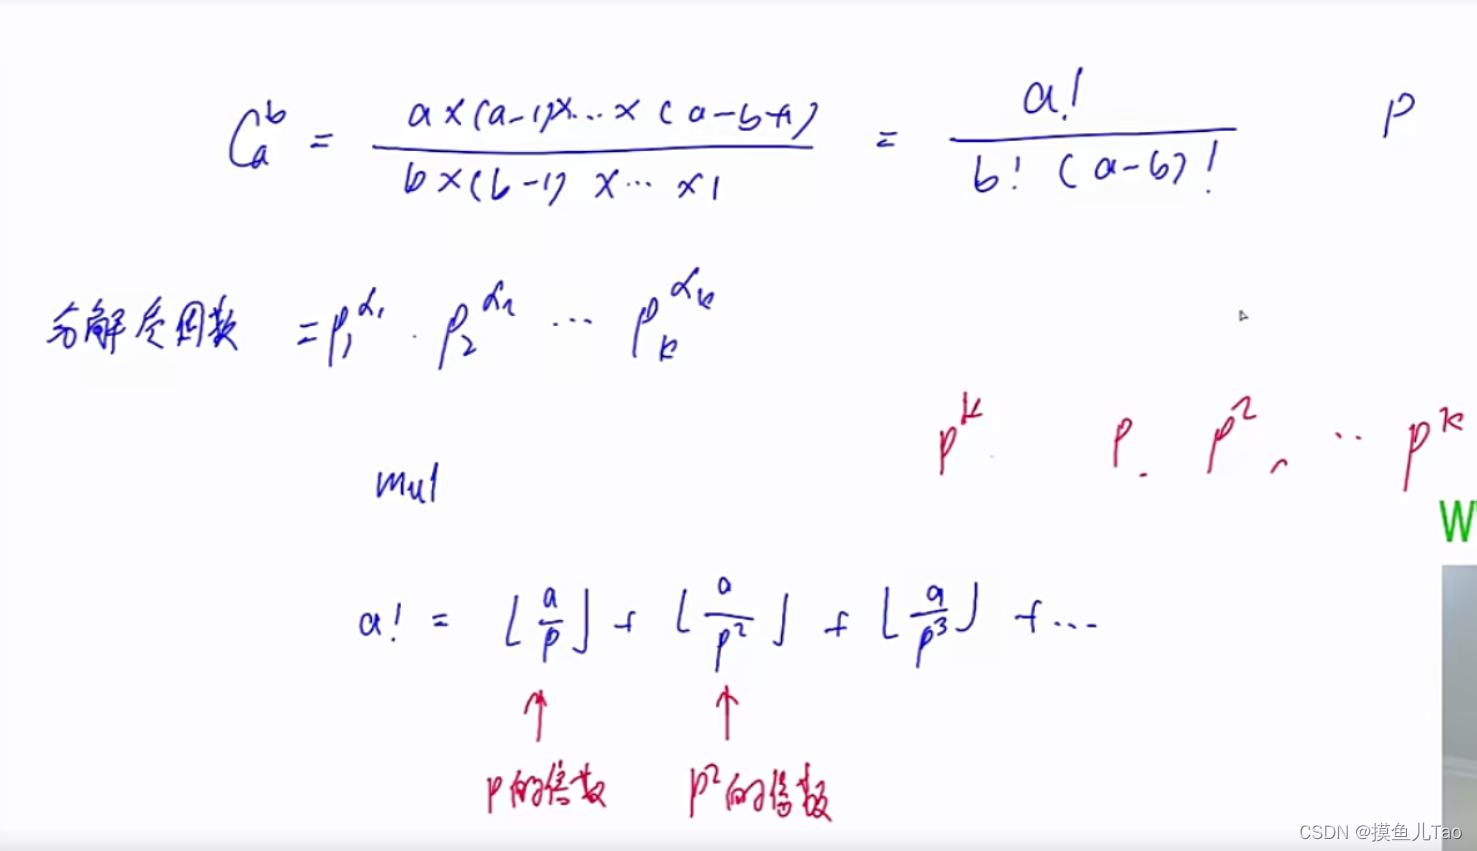 C_a^b = \frac{a×(a-1)×...×(a-b+1)}{b×(b-1)×...×1} = \frac{a!}{b!(a-b)!} P
分解质因数 = p_1^{α_1} · p_2^{α_2} ... p_k^{α_k}
p^k p. p^2, .. p^k
mul
W
a! = ⌊\frac{a}{p}⌋ + ⌊\frac{a}{p^2}⌋ + ⌊\frac{a}{p^3}⌋ + ...
↑ ↑
p的倍数 p^2的倍数
CSDN @摸鱼儿Tao